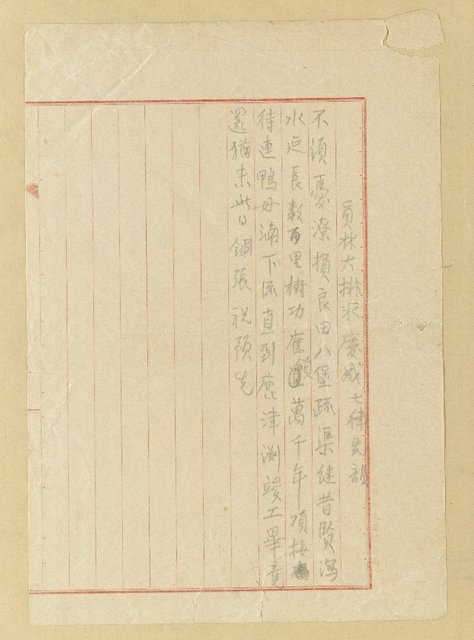 員林大排水落成七律先韻
不須憂潦損良田八堡疏渠繼昔賢瀉
水延長数百里樹功應頌萬千年項接
待連鴨母湳下流直到鹿津渕竣工畢竟
還猶未此日鋪張祝預先